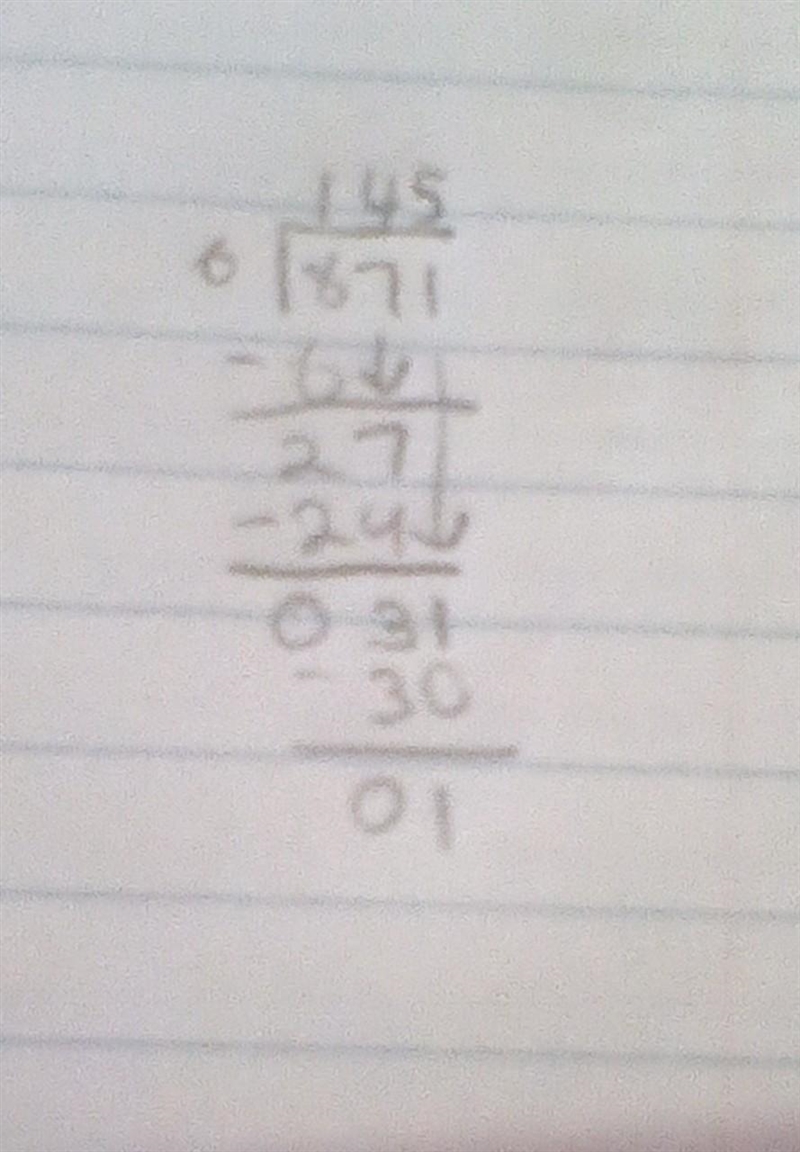 145
6 871
- 6
27
- 24
0 31
- 30
01